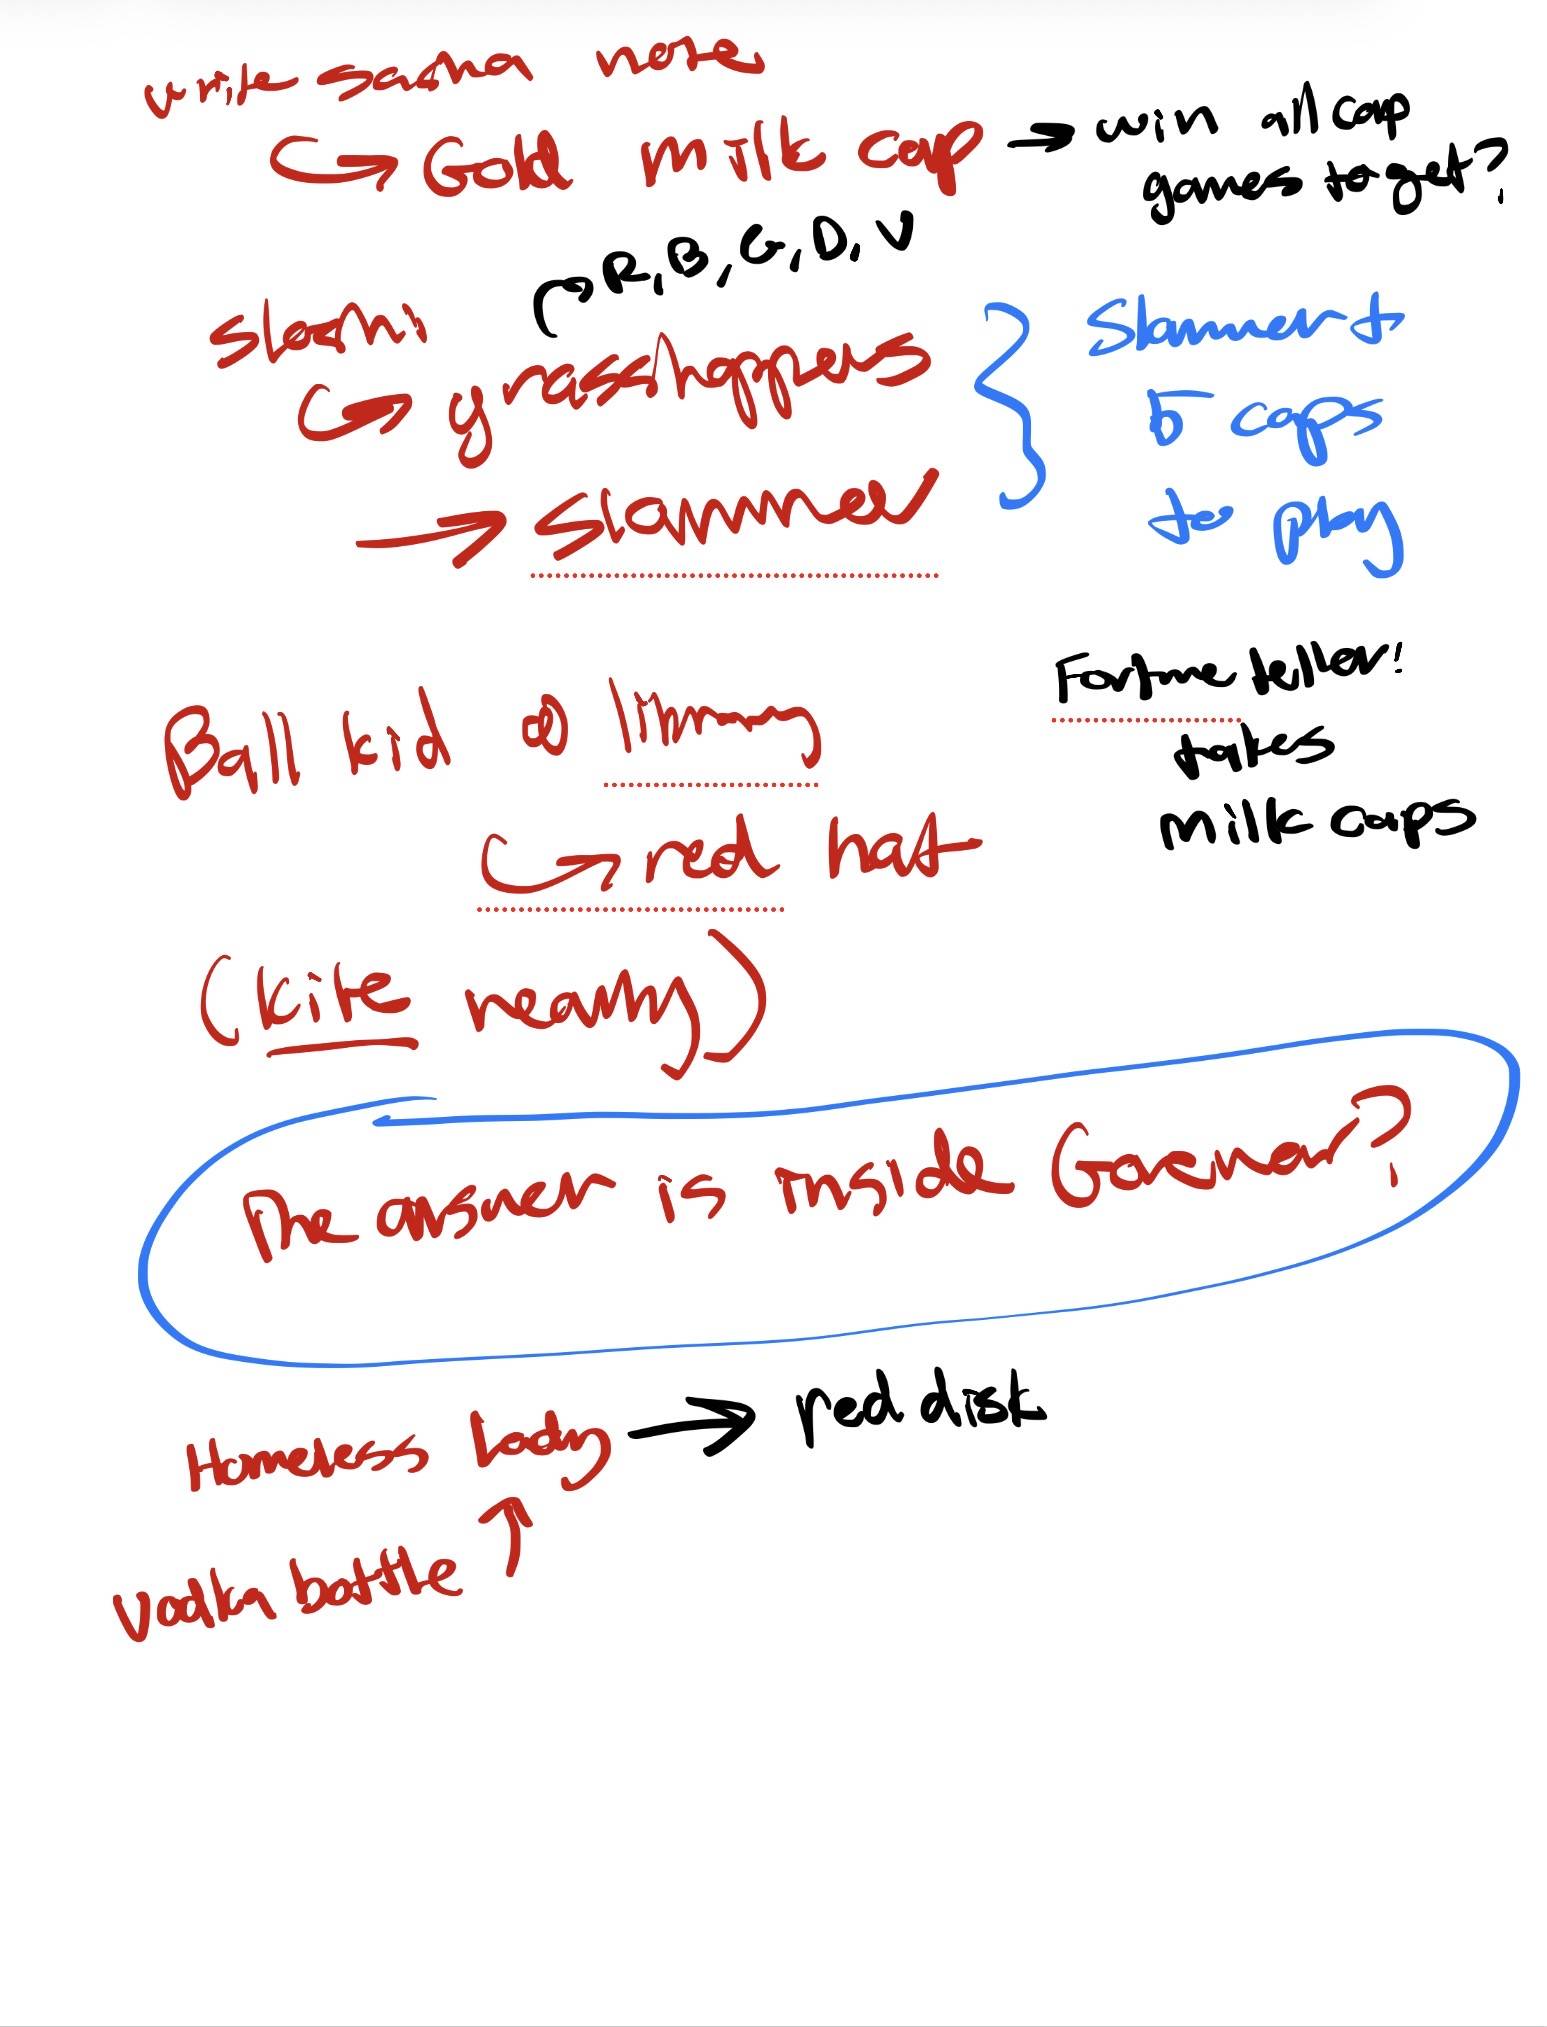 write sasha note
↪ Gold milk cap → win all cap
games to get?
↱ R, B, G, D, V
sloshi
↪ grasshoppers
→ slammer
Slammer +
5 caps
to play
Ball kid @ library
↪ red hat
(kite nearby)
Fortune teller!
takes
milk caps
The answer is inside Governor?
Homeless lady → red disk
vodka bottle ↑